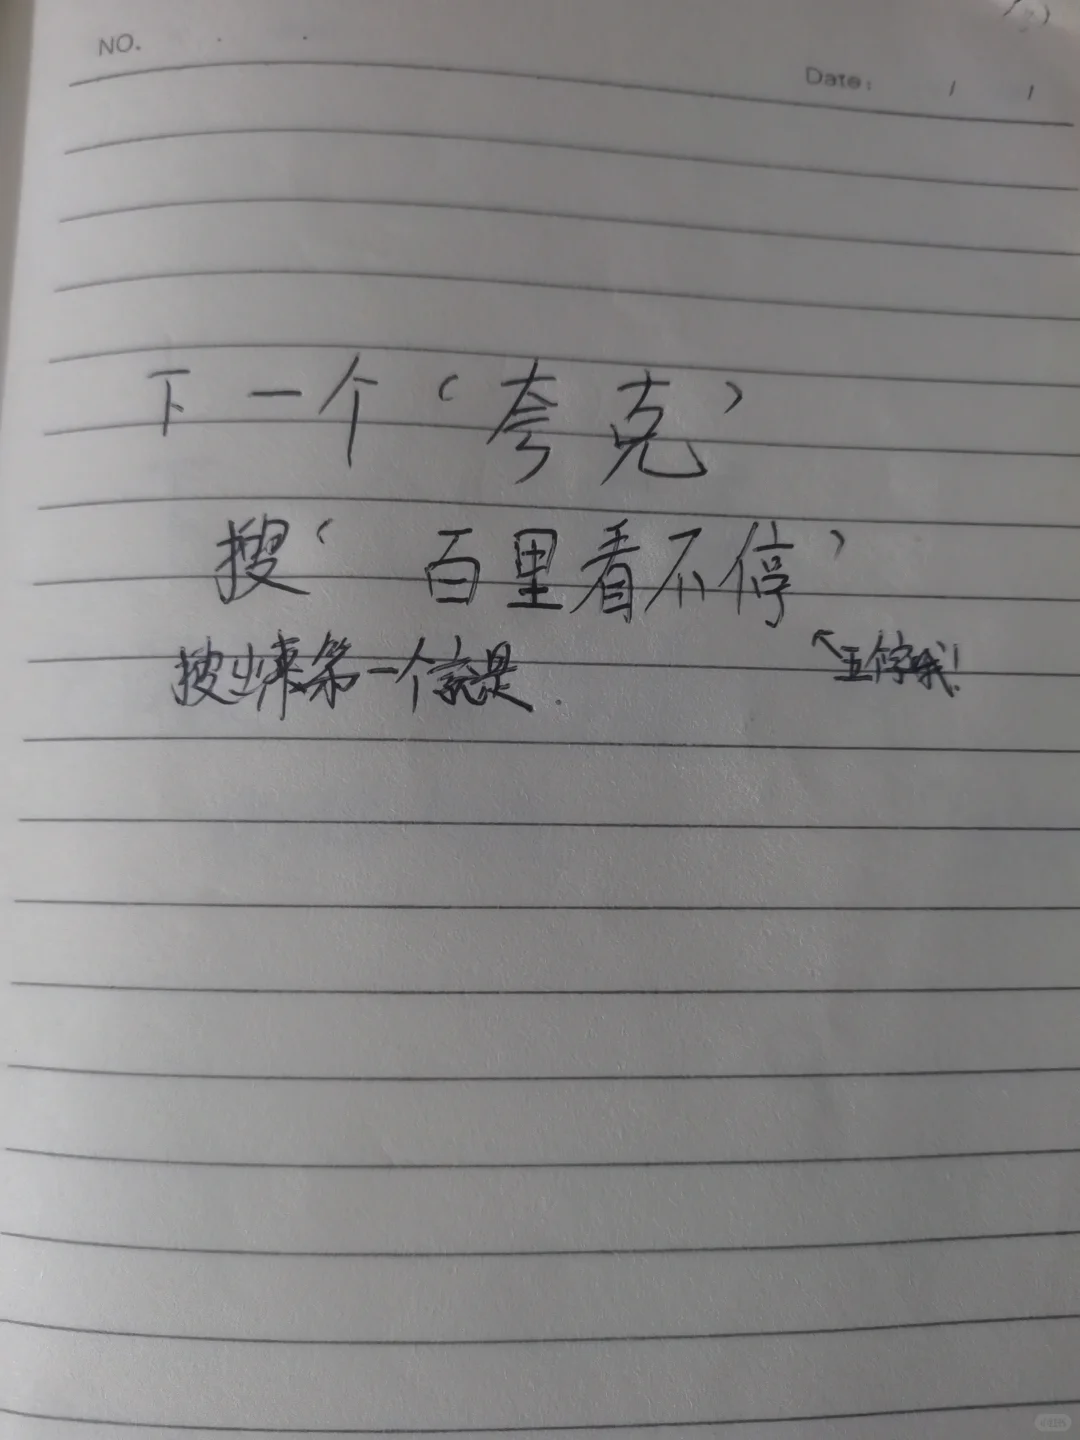 NO.
Date: / /
下一个（夸克）
搜（百里看不停）
搜出来第一个就是.
↖五个字哦!